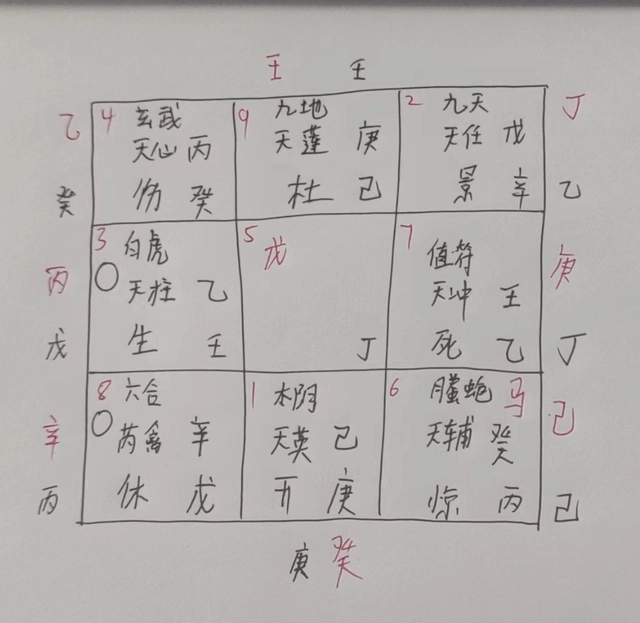 壬 壬
乙 4 玄武 9 九地 2 九天 丁
天心 丙 天蓬 庚 天任 戊
癸 伤 癸 杜 己 景 辛 乙
3 白虎 5 戊 7 值符 庚
丙 天柱 乙 天冲 壬
戊 生 壬 丁 死 乙 丁
8 六合 1 太阴 6 螣蛇 马 己
辛 芮禽 辛 天英 己 天辅 癸
丙 休 戊 开 庚 惊 丙 己
庚 癸